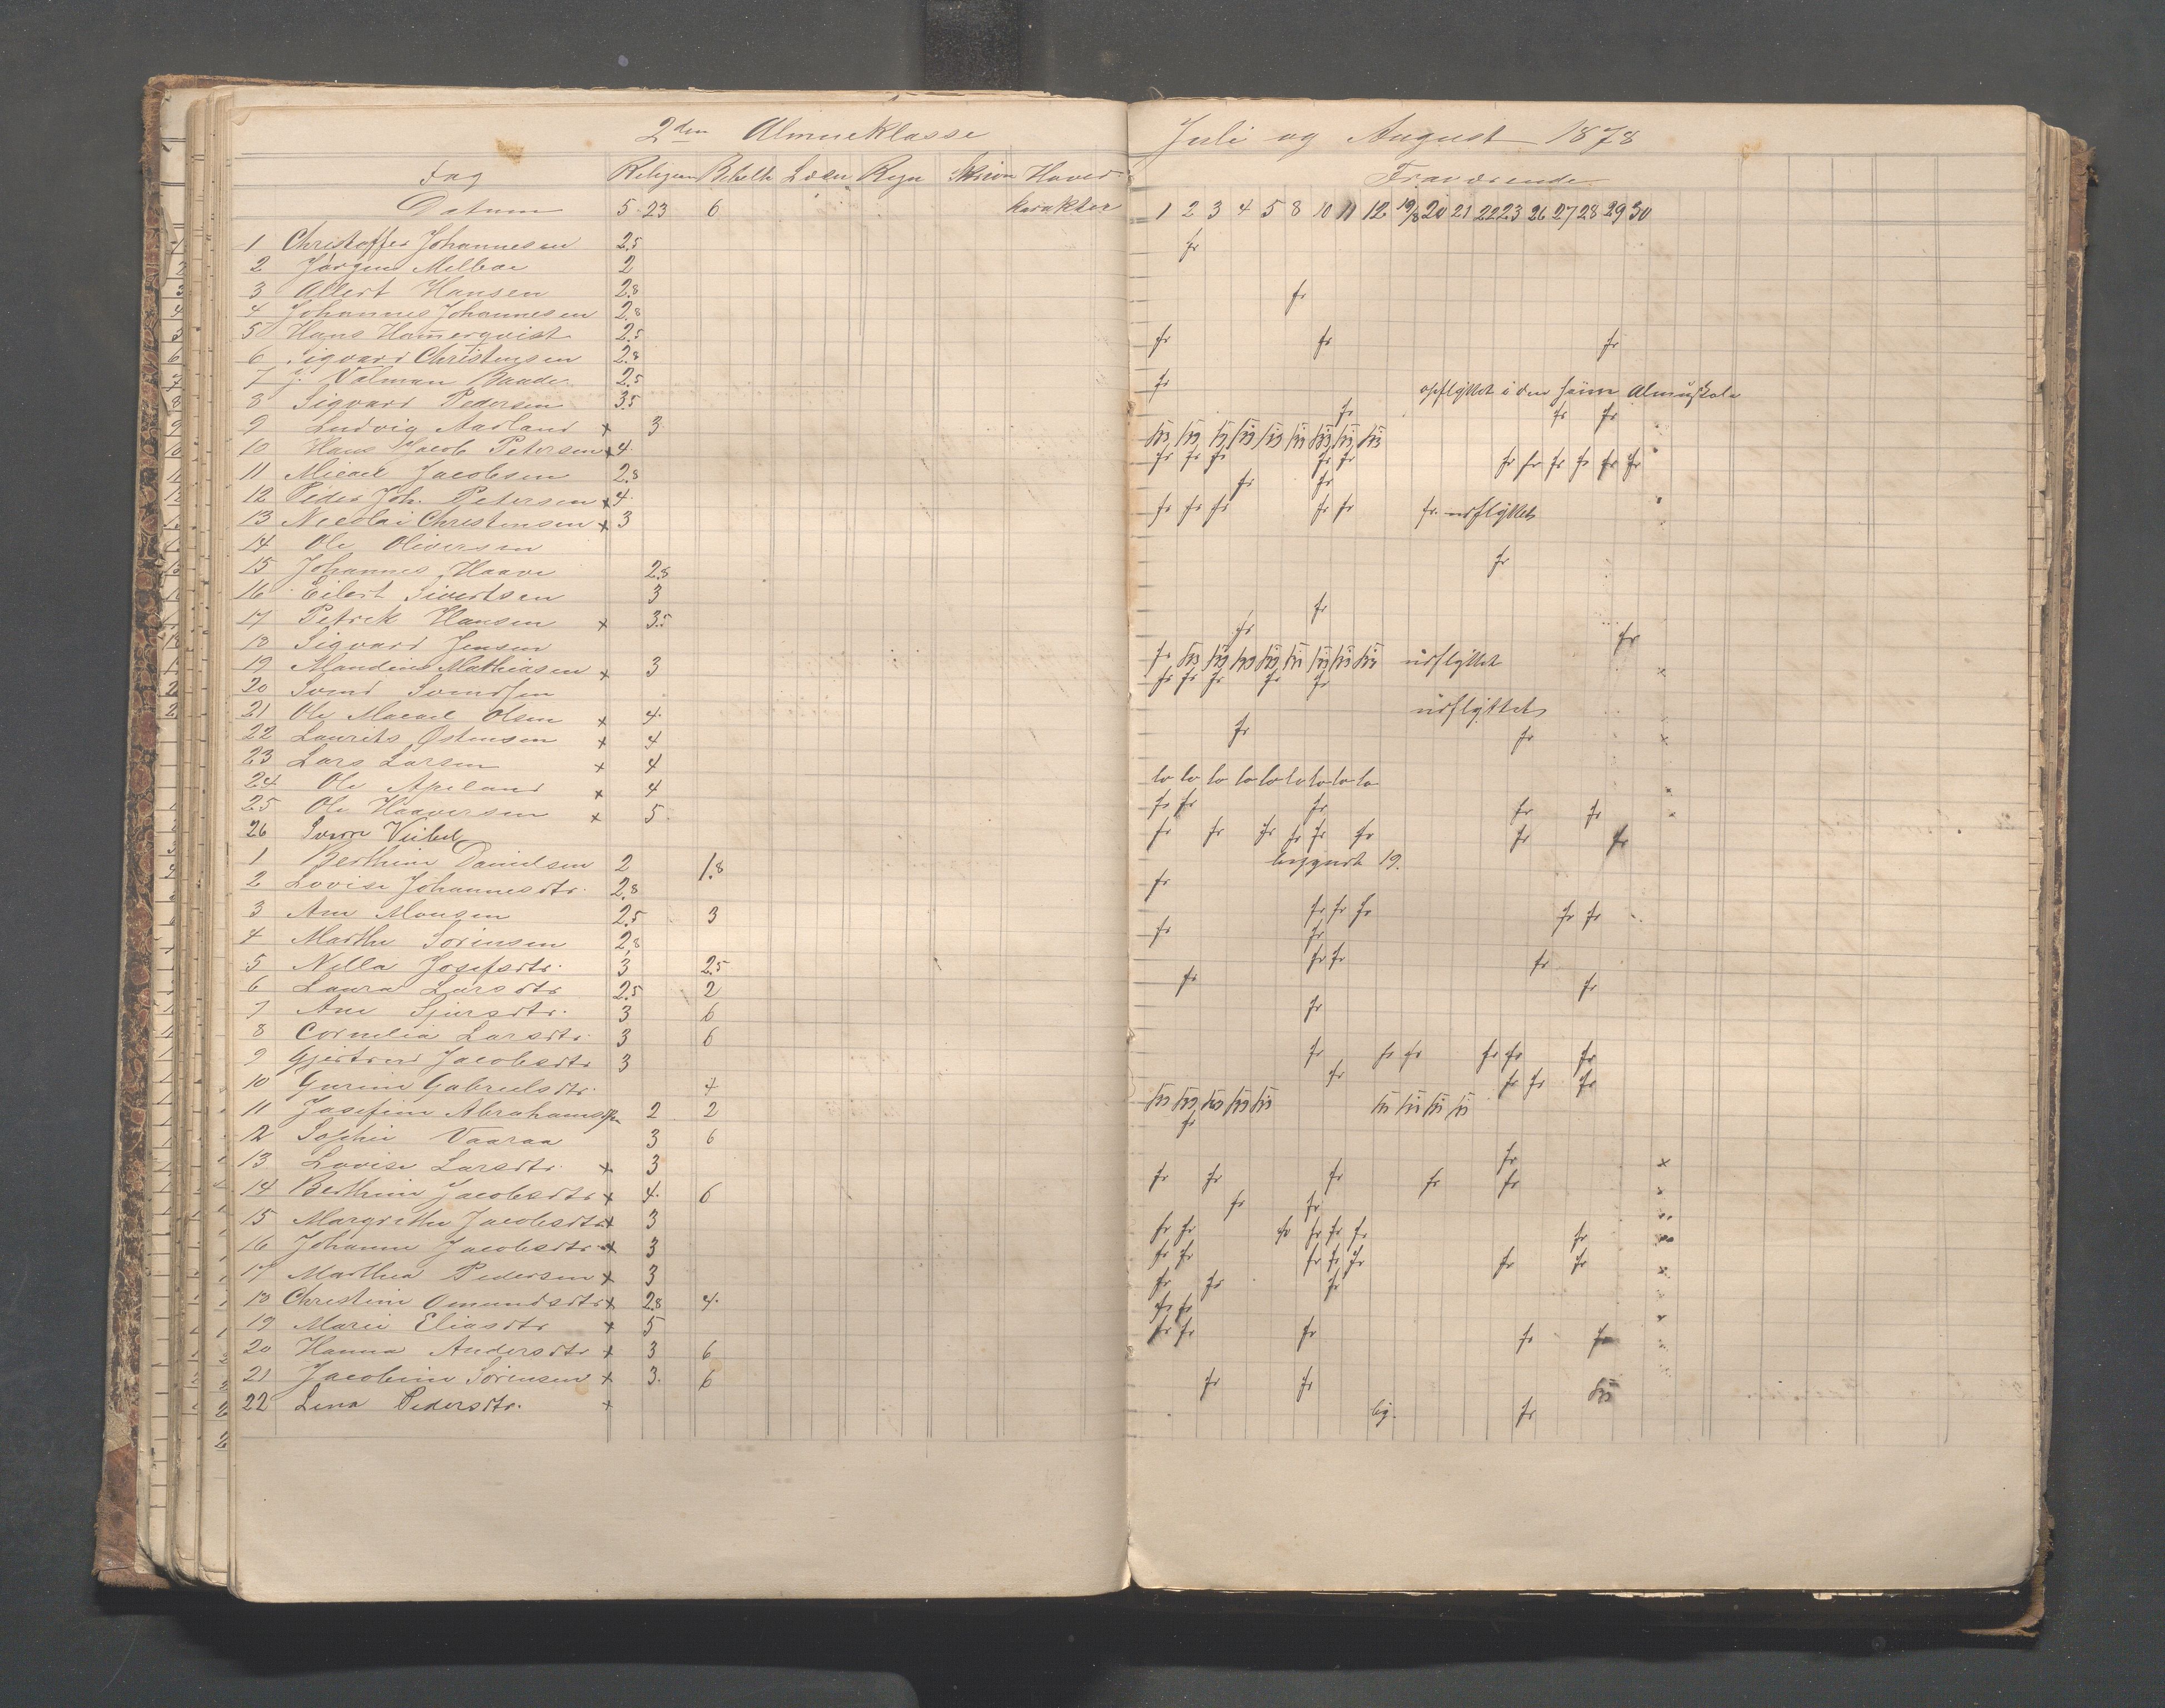 2den Almueklasse
Juli og August 1878
Fag Religion Bibelh Læsn Regn Skrivn Hoved-
Fraværende
Datum 5 23 6 karakter
1 2 3 4 5 8 10 11 12 19/8 20 21 22 23 26 27 28 29 30
1 Christoffer Johannesen 2.5 fr
2 Jørgen Melboe 2
3 Allert Hansen 2.8 fr
4 Johannes Johannesen 2.8
5 Hans Hamerqvist 2.5 fr fr fr
6 Sigvard Christensen 2.8
7 J. Valman Baade 2.5 fr opflyttet i den Almuskole
8 Sigvard Pedersen 3.5 fr fr fr
9 Ludvig Aarland x 3
10 Hans Jacob Petersen x 4 fr fr fr fr fr fr fr fr fr fr fr
11 Micael Jacobsen 2.8 fr fr
12 Peder Joh. Petersen x 4 fr fr fr fr fr fr. udflyttet
13 Nicolai Christensen x 3
14 Ole Oliversen fr
15 Johannes Haave 2.8
16 Eilert Sivertsen 3 fr
17 Petrek Hansen x 3.5 fr fr
18 Sigvard Jensen fr udflyttet
19 Mandius Mathiasen x 3 fr fr fr fr fr x
20 Svend Svendsen udflyttet
21 Ole Macael Olsen x 4 fr
22 Laurits Østensen x 4 fr x
23 Lars Larsen x 4 lo lo lo lo lo lo lo lo lo
24 Ole Apeland x 4 fr fr fr fr fr x
25 Ole Haaversen x 5 fr fr fr fr fr fr fr fr x
26 Svern begyndt 19.
1 Berthine Danielsen 2 1.8 fr
2 Lovise Johannesdtr. 2.8 fr fr fr fr fr
3 Ane Monsen 2.5 3 fr fr
4 Marthe Sørensen 2.8 fr fr fr
5 Nella Josefsdtr. 3 2.5 fr fr
6 Laura Larsdtr 2.5 2 fr
7 Ane Sjursdtr. 3 6
8 Cornelia Larsdtr. 3 6 fr fr fr fr fr fr
9 Gjertrud Jacobsdtr 3 fr fr fr fr
10 Gurine Gabrielsdtr. 4
11 Josefine Abrahamsen 2 2 fr
12 Sophie Vaaraa 3 6 fr
13 Lovise Larsdtr. x 3 fr fr fr fr fr x
14 Berthine Jacobsdtr x 4 6 fr fr x
15 Margrethe Jacobsdtr x 3 fr fr fr fr fr fr fr
16 Johanne Jacobsdtr x 3 fr fr fr fr fr fr fr
17 Marthea Pedersen x 3 fr fr fr x
18 Christine Omundsdtr x 2.8 4 fr fr x
19 Marie Eliasdtr x 5 fr fr fr fr fr x
20 Hanna Andersdtr x 3 6
21 Jacobine Sørensen x 3 6 fr fr
22 Lena Pedersdtr. x bg. fr